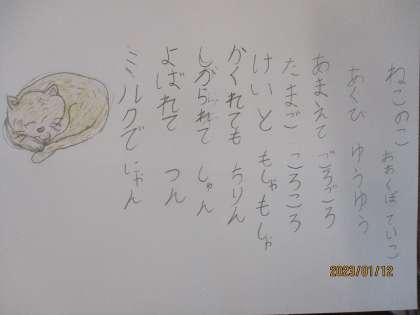 ねこのこ
おおくぼていこ
あくび ゆうゆう
あまえて ごろごろ
たまご ころころ
けいと もしゃもしゃ
かくれても ちりん
しかられて しゅん
よばれて つん
ミルクで にゃん
2023/01/12